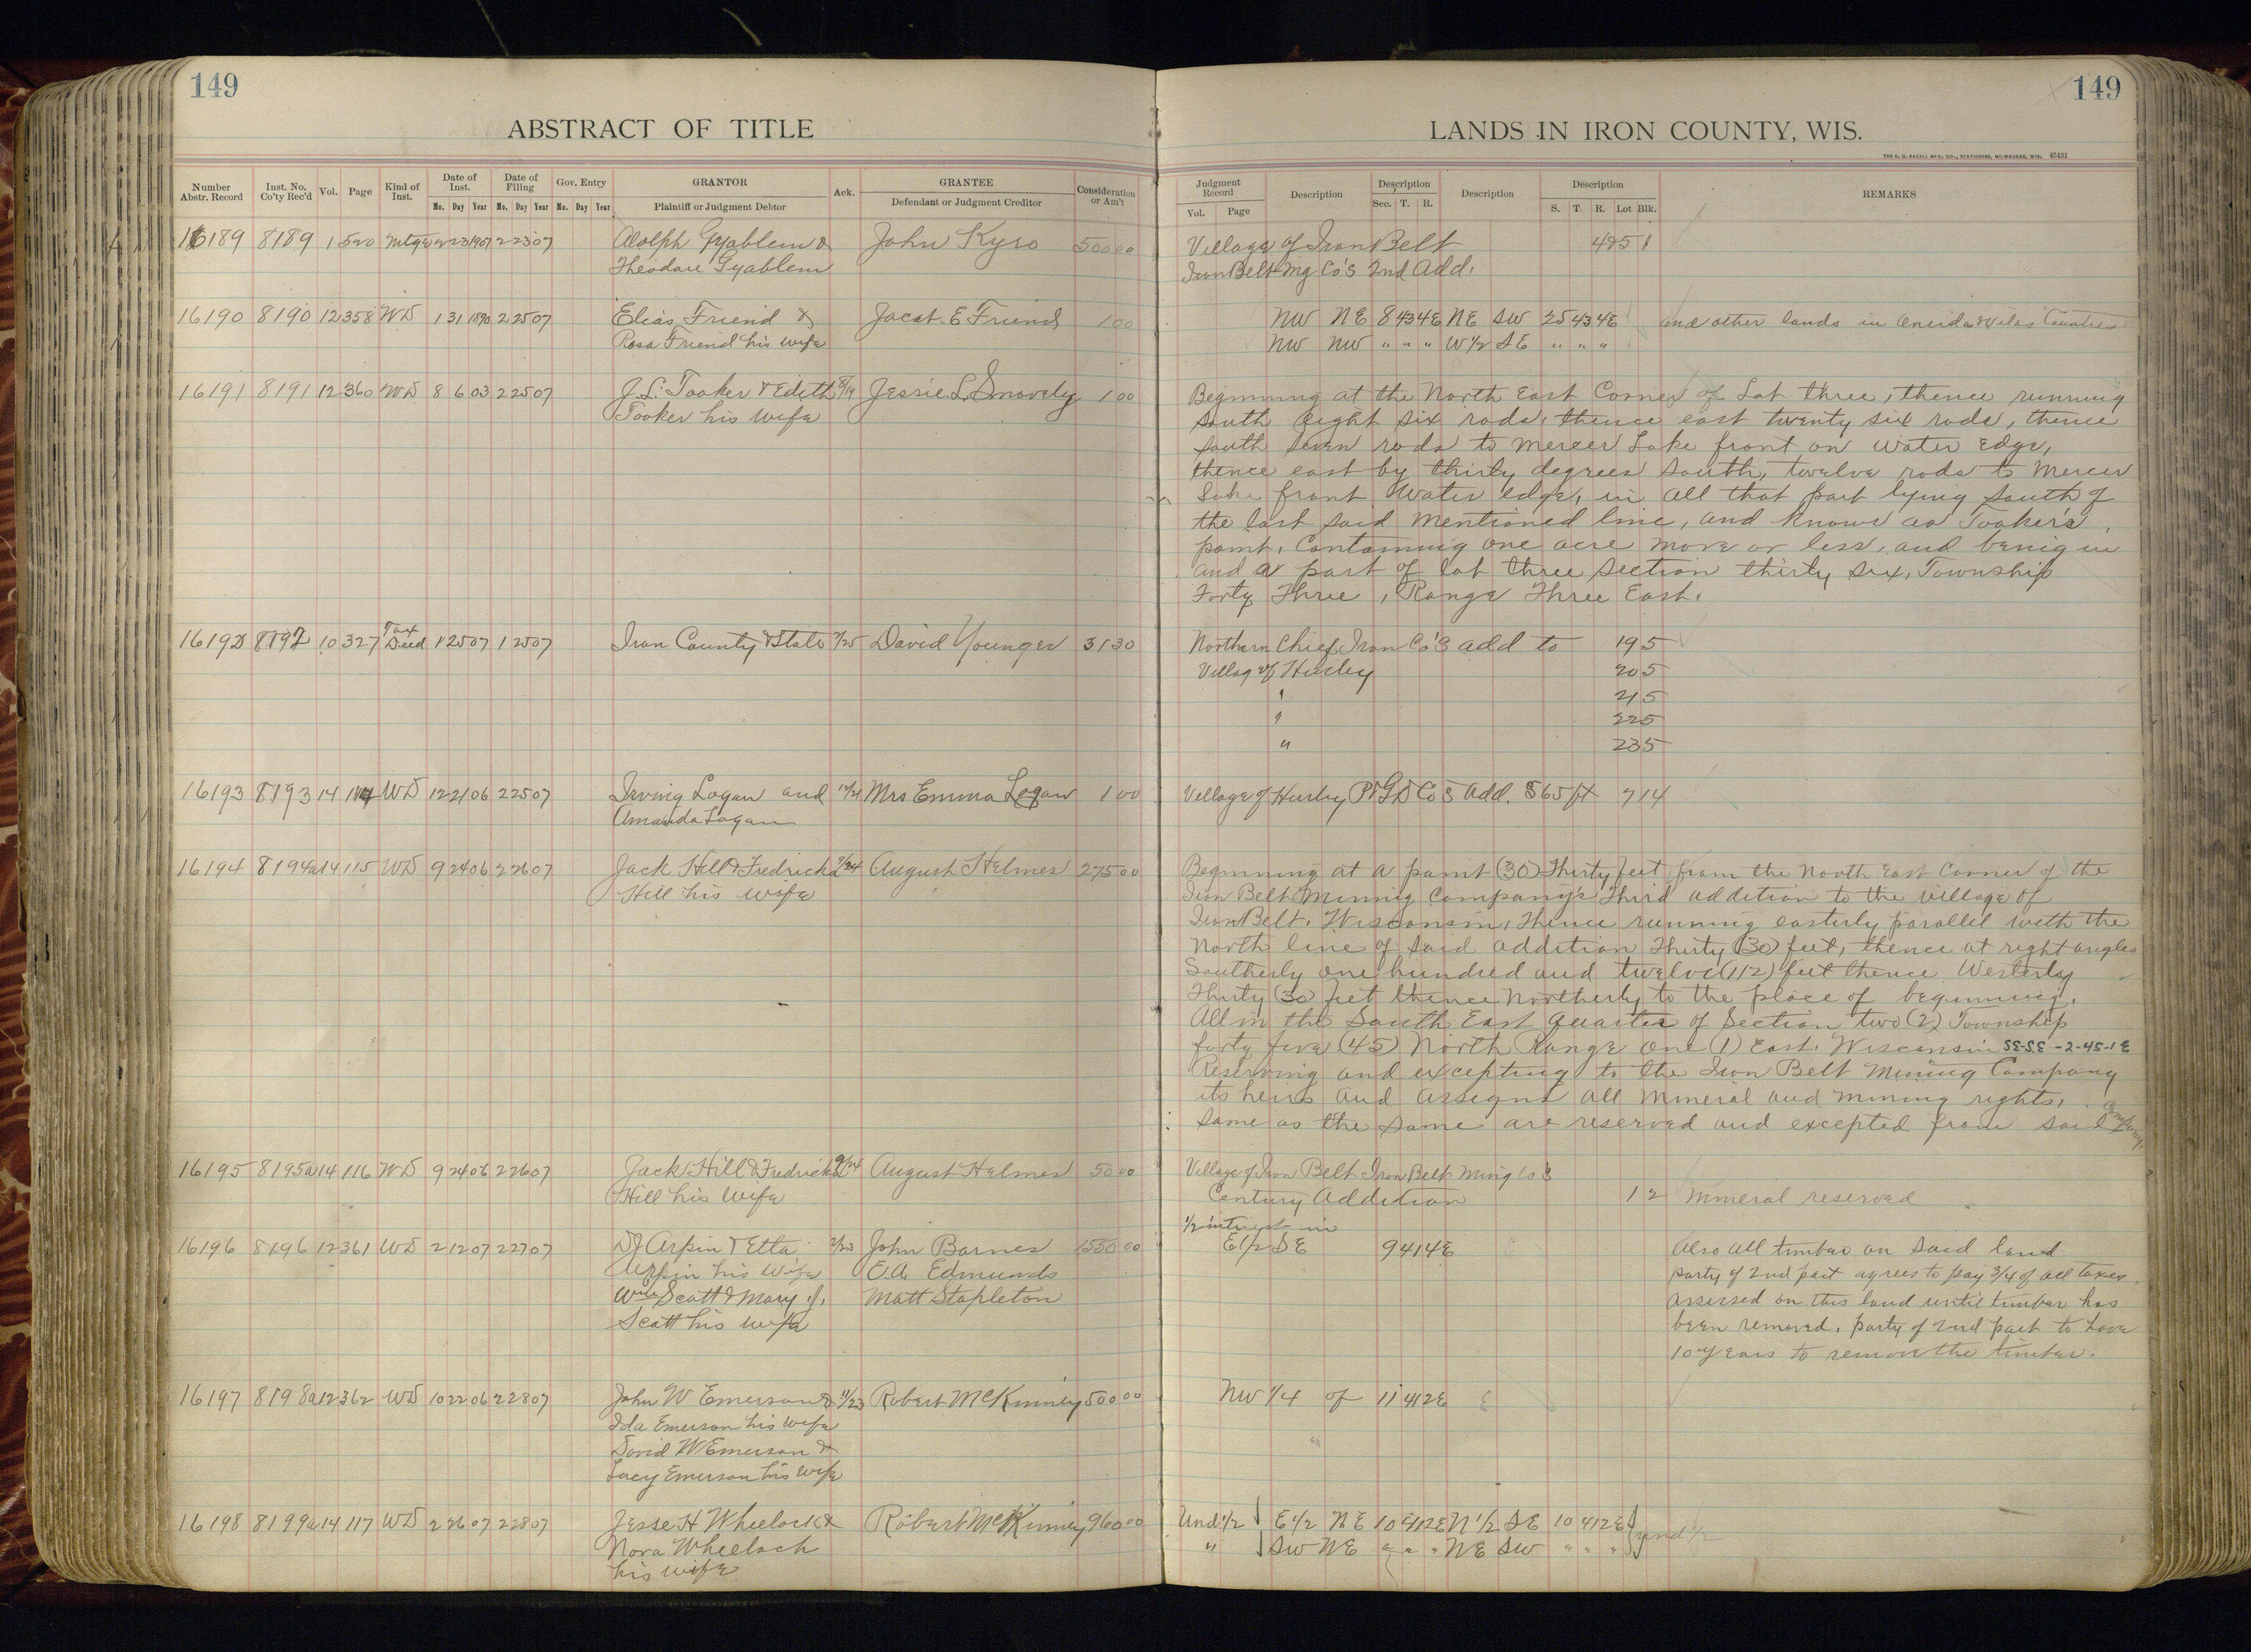 149
ABSTRACT OF TITLE
Number Abstr. Record Inst. No. Co'ty Rec'd Vol. Page Kind of Inst. Date of Inst. Date of Filing Gov. Entry GRANTOR Ack. GRANTEE Consideration or Am't
Mo. Day Year Mo. Day Year Mo. Day Year Plaintiff or Judgment Debtor Defendant or Judgment Creditor
16189 8189 1 520 Mtge 2 23 1907 2 23 07 Adolph Gyablem & John Kyro 500 00
Theodore Gyablem
16190 8190 12 358 WD 1 31 1890 2 25 07 Elias Friend & Jacob E Friend 1 00
Rosa Friend his wife
16191 8191 12 360 WD 8 6 03 2 25 07 J.L. Tooker & Edith 8/19 Jessie L. Snavely 1 00
Tooker his wife
16192 8192 10 327 Tax Deed 1 25 07 1 25 07 Iron County & State 1/25 David Younger 31 30
16193 8193 14 114 WD 12 21 06 2 25 07 Irving Logan and 12/21 Mrs Emma Logan 1 00
Amanda Logan
16194 8194a 14 115 WD 9 24 06 2 26 07 Jack Hill & Fredricka 9/24 August Helmer 275 00
Hill his wife
16195 8195a 14 116 WD 9 24 06 2 26 07 Jack Hill & Fredricka 9/24 August Helmer 50 00
Hill his wife
16196 8196 12 361 WD 2 12 07 2 27 07 DJ Arpin & Etta 2/23 John Barnes 1550 00
Arpin his wife E.A. Edmunds
Wm Scott & Mary J. Matt Stapleton
Scott his wife
16197 8198a 12 362 WD 10 22 06 2 28 07 John W Emerson & 11/23 Robert McKinney 500 00
Ida Emerson his wife
David W Emerson &
Lucy Emerson his wife
16198 8199a 14 117 WD 2 26 07 2 28 07 Jesse H Wheelock & Robert McKinney 960 00
Nora Wheelock
his wife
149
LANDS IN IRON COUNTY, WIS.
THE H. G. RAZALL MFG. CO., STATIONERS, MILWAUKEE, WIS. 45431
Judgment Record Description Description Description Description REMARKS
Vol. Page Sec. T. R. S. T. R. Lot Blk.
Village of Iron Belt 48 51
Iron Belt Mg Co's 2nd Add.
NW NE 8 43 4E NE SW 25 43 4E and other lands in Oneida & Vilas Counties
NW NW " " " W 1/2 SE " " "
Beginning at the North East Corner of Lot three, thence running
south eight six rods, thence east twenty six rods, thence
south seven rods to Mercer Lake front on water edge,
thence east by thirty degrees south, twelve rods to Mercer
Lake front water edge, in all that part lying south of
the last said mentioned line, and known as Tooker's
point, Containing one acre more or less, and being in
and a part of lot three section thirty six, Township
Forty Three, Range Three East.
Northern Chief Iron Co's add to 19 5
Villag of Hurley 20 5
" 21 5
" 22 5
" 23 5
Village of Hurley P&GD Co's Add. S 65 ft 7 14
Beginning at a point (30) Thirty feet from the North East Corner of the
Iron Belt Mining Company's Third addition to the village of
Iron Belt, Wisconsin, thence running easterly parallel with the
North line of said addition Thirty (30) feet, thence at right angles
Southerly one hundred and twelve (112) feet thence Westerly
Thirty (30) feet thence Northerly to the place of beginning.
All in the South East quarter of Section two (2) Township
forty five (45) North Range One (1) East. Wisconsin SE-SE-2-45-1E
Reserving and excepting to the Iron Belt Mining Company
its heirs and assigns all mineral and mining rights,
same as the same are reserved and excepted from said Company
Village of Iron Belt Iron Belt Ming Co's
Century Addition 1 2 Mineral reserved
1/2 interest in
E 1/2 SE 9 41 4E Also all timber on said land
party of 2nd part agrees to pay 3/4 of all taxes
assessed on this land until timber has
been removed, party of 2nd part to have
10 years to remove the timber.
NW 1/4 of 11 41 2E
Und 1/2 E 1/2 NE 10 41 2E N 1/2 SE 10 41 2E und 1/2
" SW NE " " " NE SW " " "